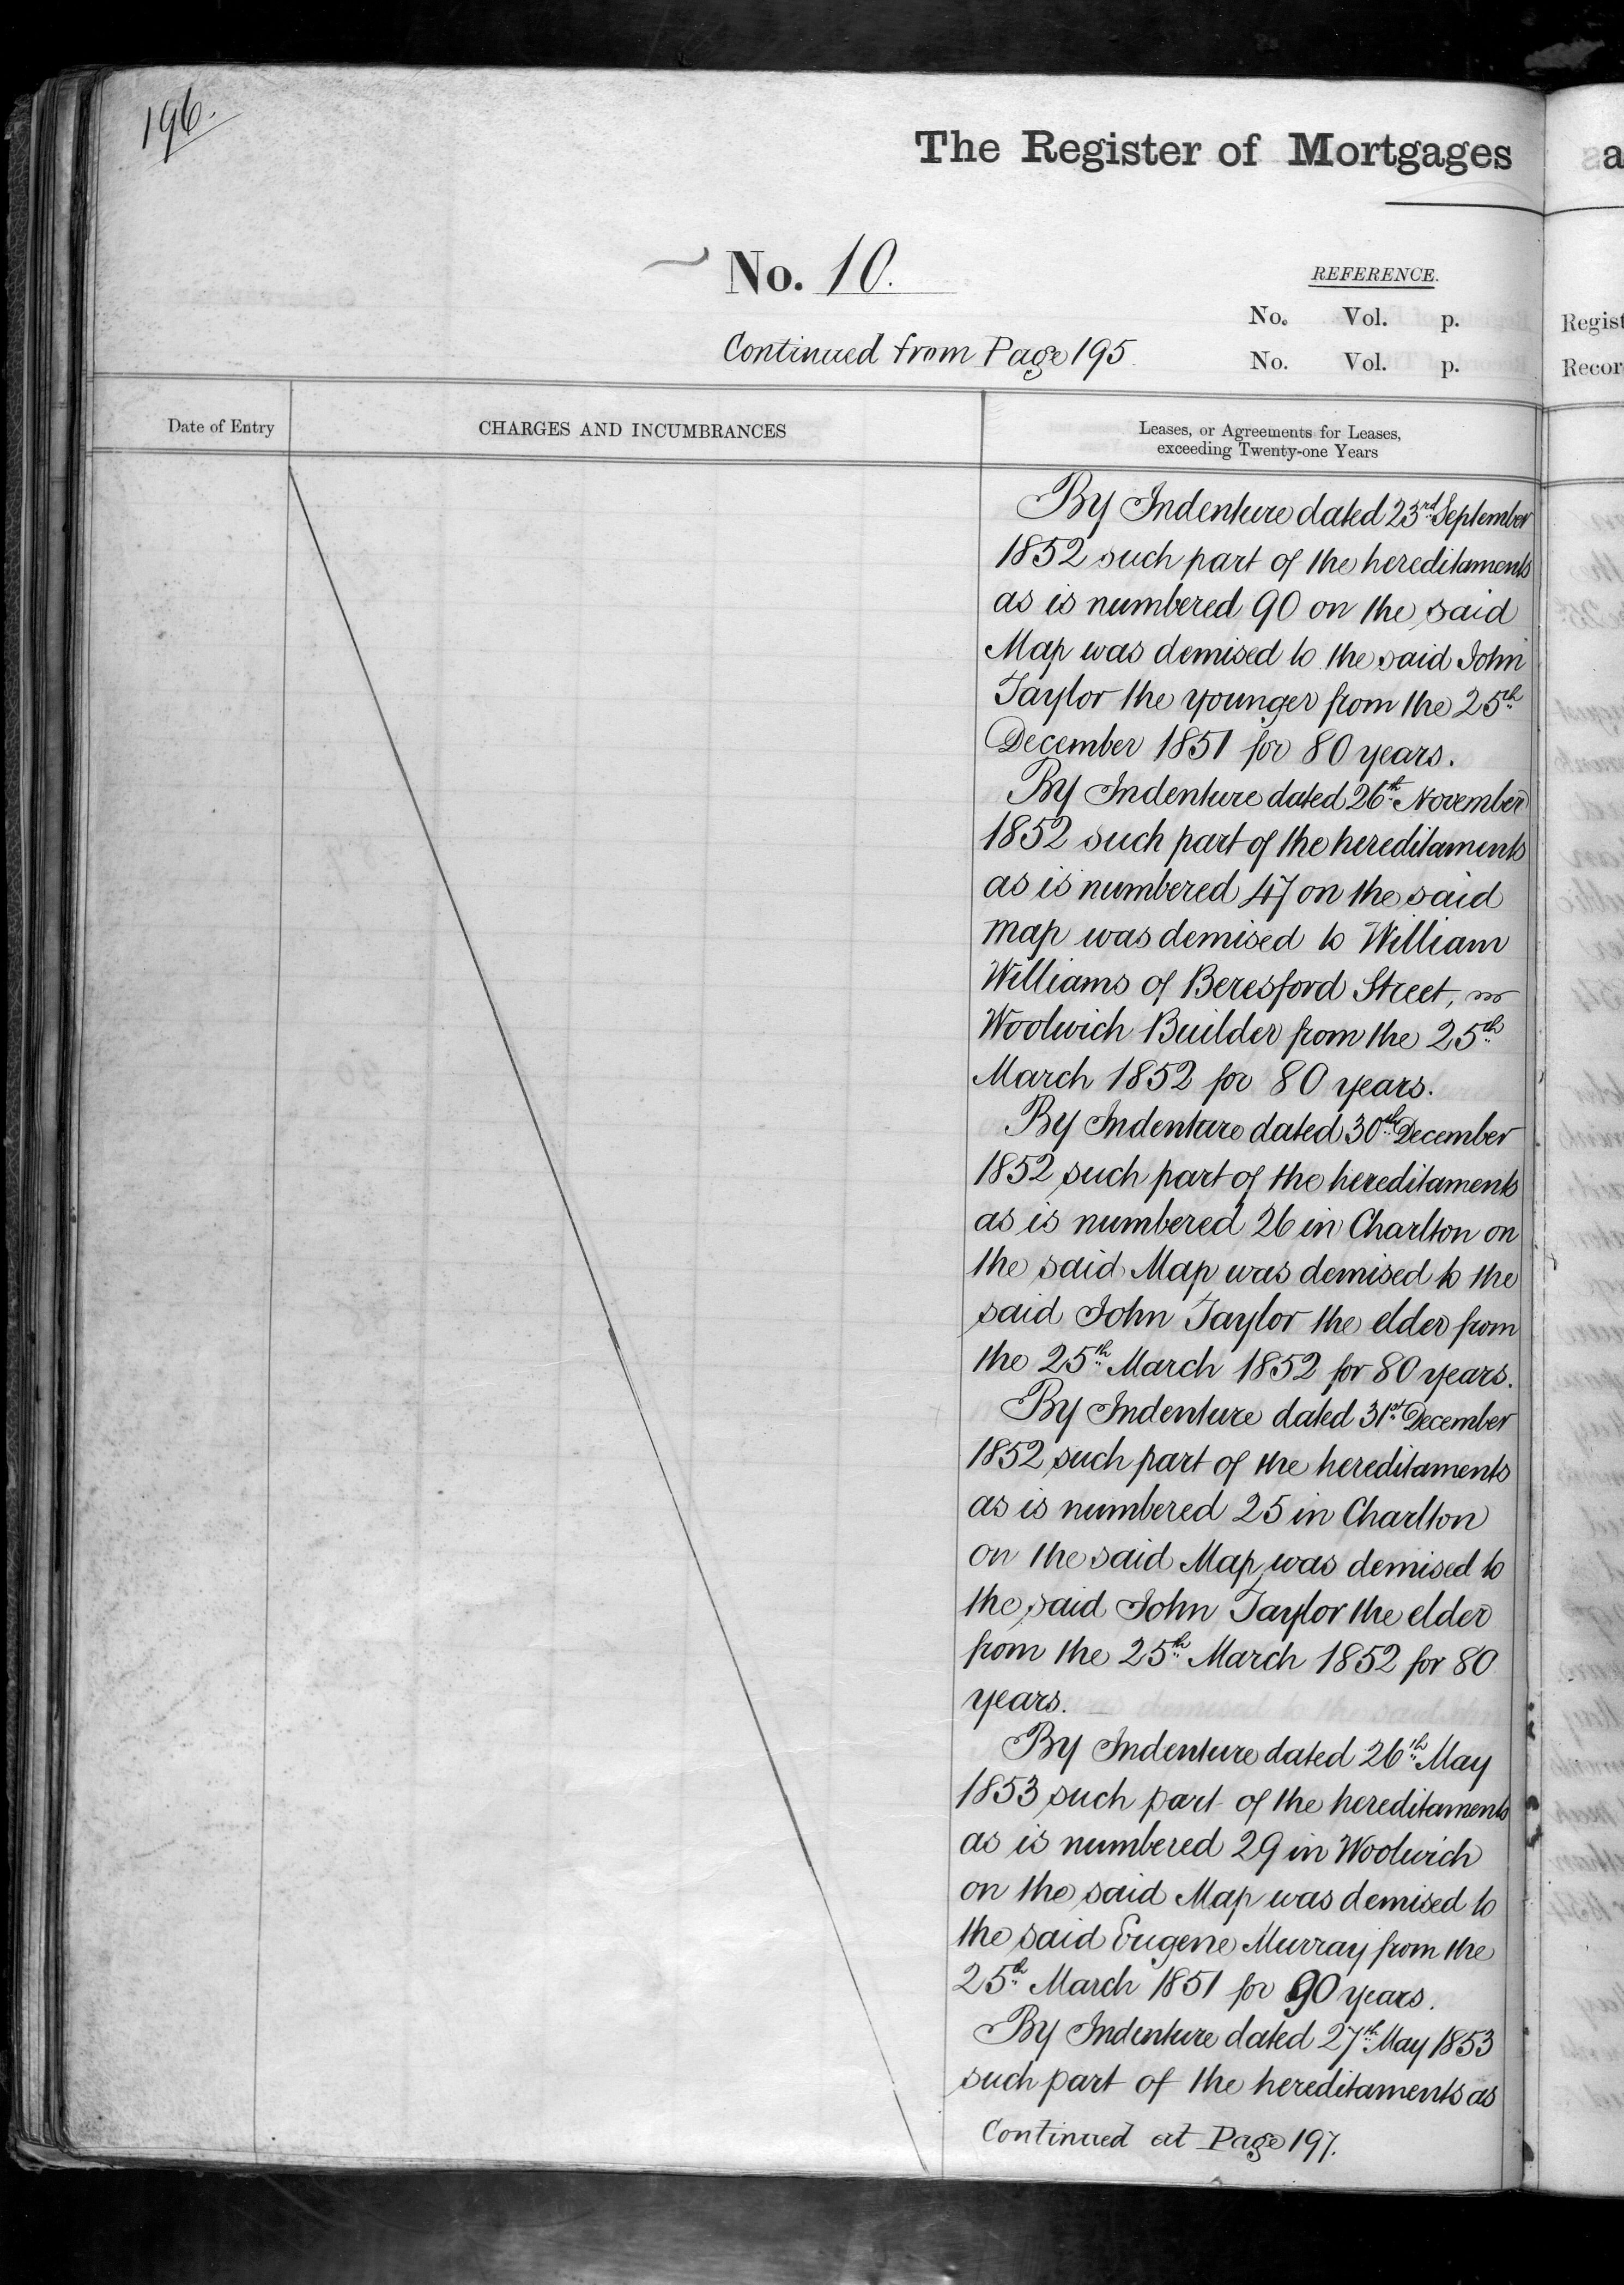 196.
The Register of Mortgages
No. 10.
REFERENCE.
No. Vol. p.
Continued from Page 195
No. Vol. p.
Regist
Recor
Date of Entry
CHARGES AND INCUMBRANCES
Leases, or Agreements for Leases,
exceeding Twenty-one Years
By Indenture dated 23rd September
1852 such part of the hereditaments
as is numbered 90 on the said
Map was demised to the said John
Taylor the younger from the 25th
December 1851 for 80 years.
By Indenture dated 26th November
1852 such part of the hereditaments
as is numbered 47 on the said
map was demised to William
Williams of Beresford Street,
Woolwich Builder from the 25th
March 1852 for 80 years.
By Indenture dated 30th December
1852 such part of the hereditaments
as is numbered 26 in Charlton on
the said Map was demised to the
said John Taylor the elder from
the 25th March 1852 for 80 years.
By Indenture dated 31st December
1852 such part of the hereditaments
as is numbered 25 in Charlton
on the said Map was demised to
the said John Taylor the elder
from the 25th March 1852 for 80
years.
By Indenture dated 26th May
1853 such part of the hereditaments
as is numbered 29 in Woolwich
on the said Map was demised to
the said Eugene Murray from the
25th March 1851 for 90 years.
By Indenture dated 27th May 1853
such part of the hereditaments as
Continued at Page 197.